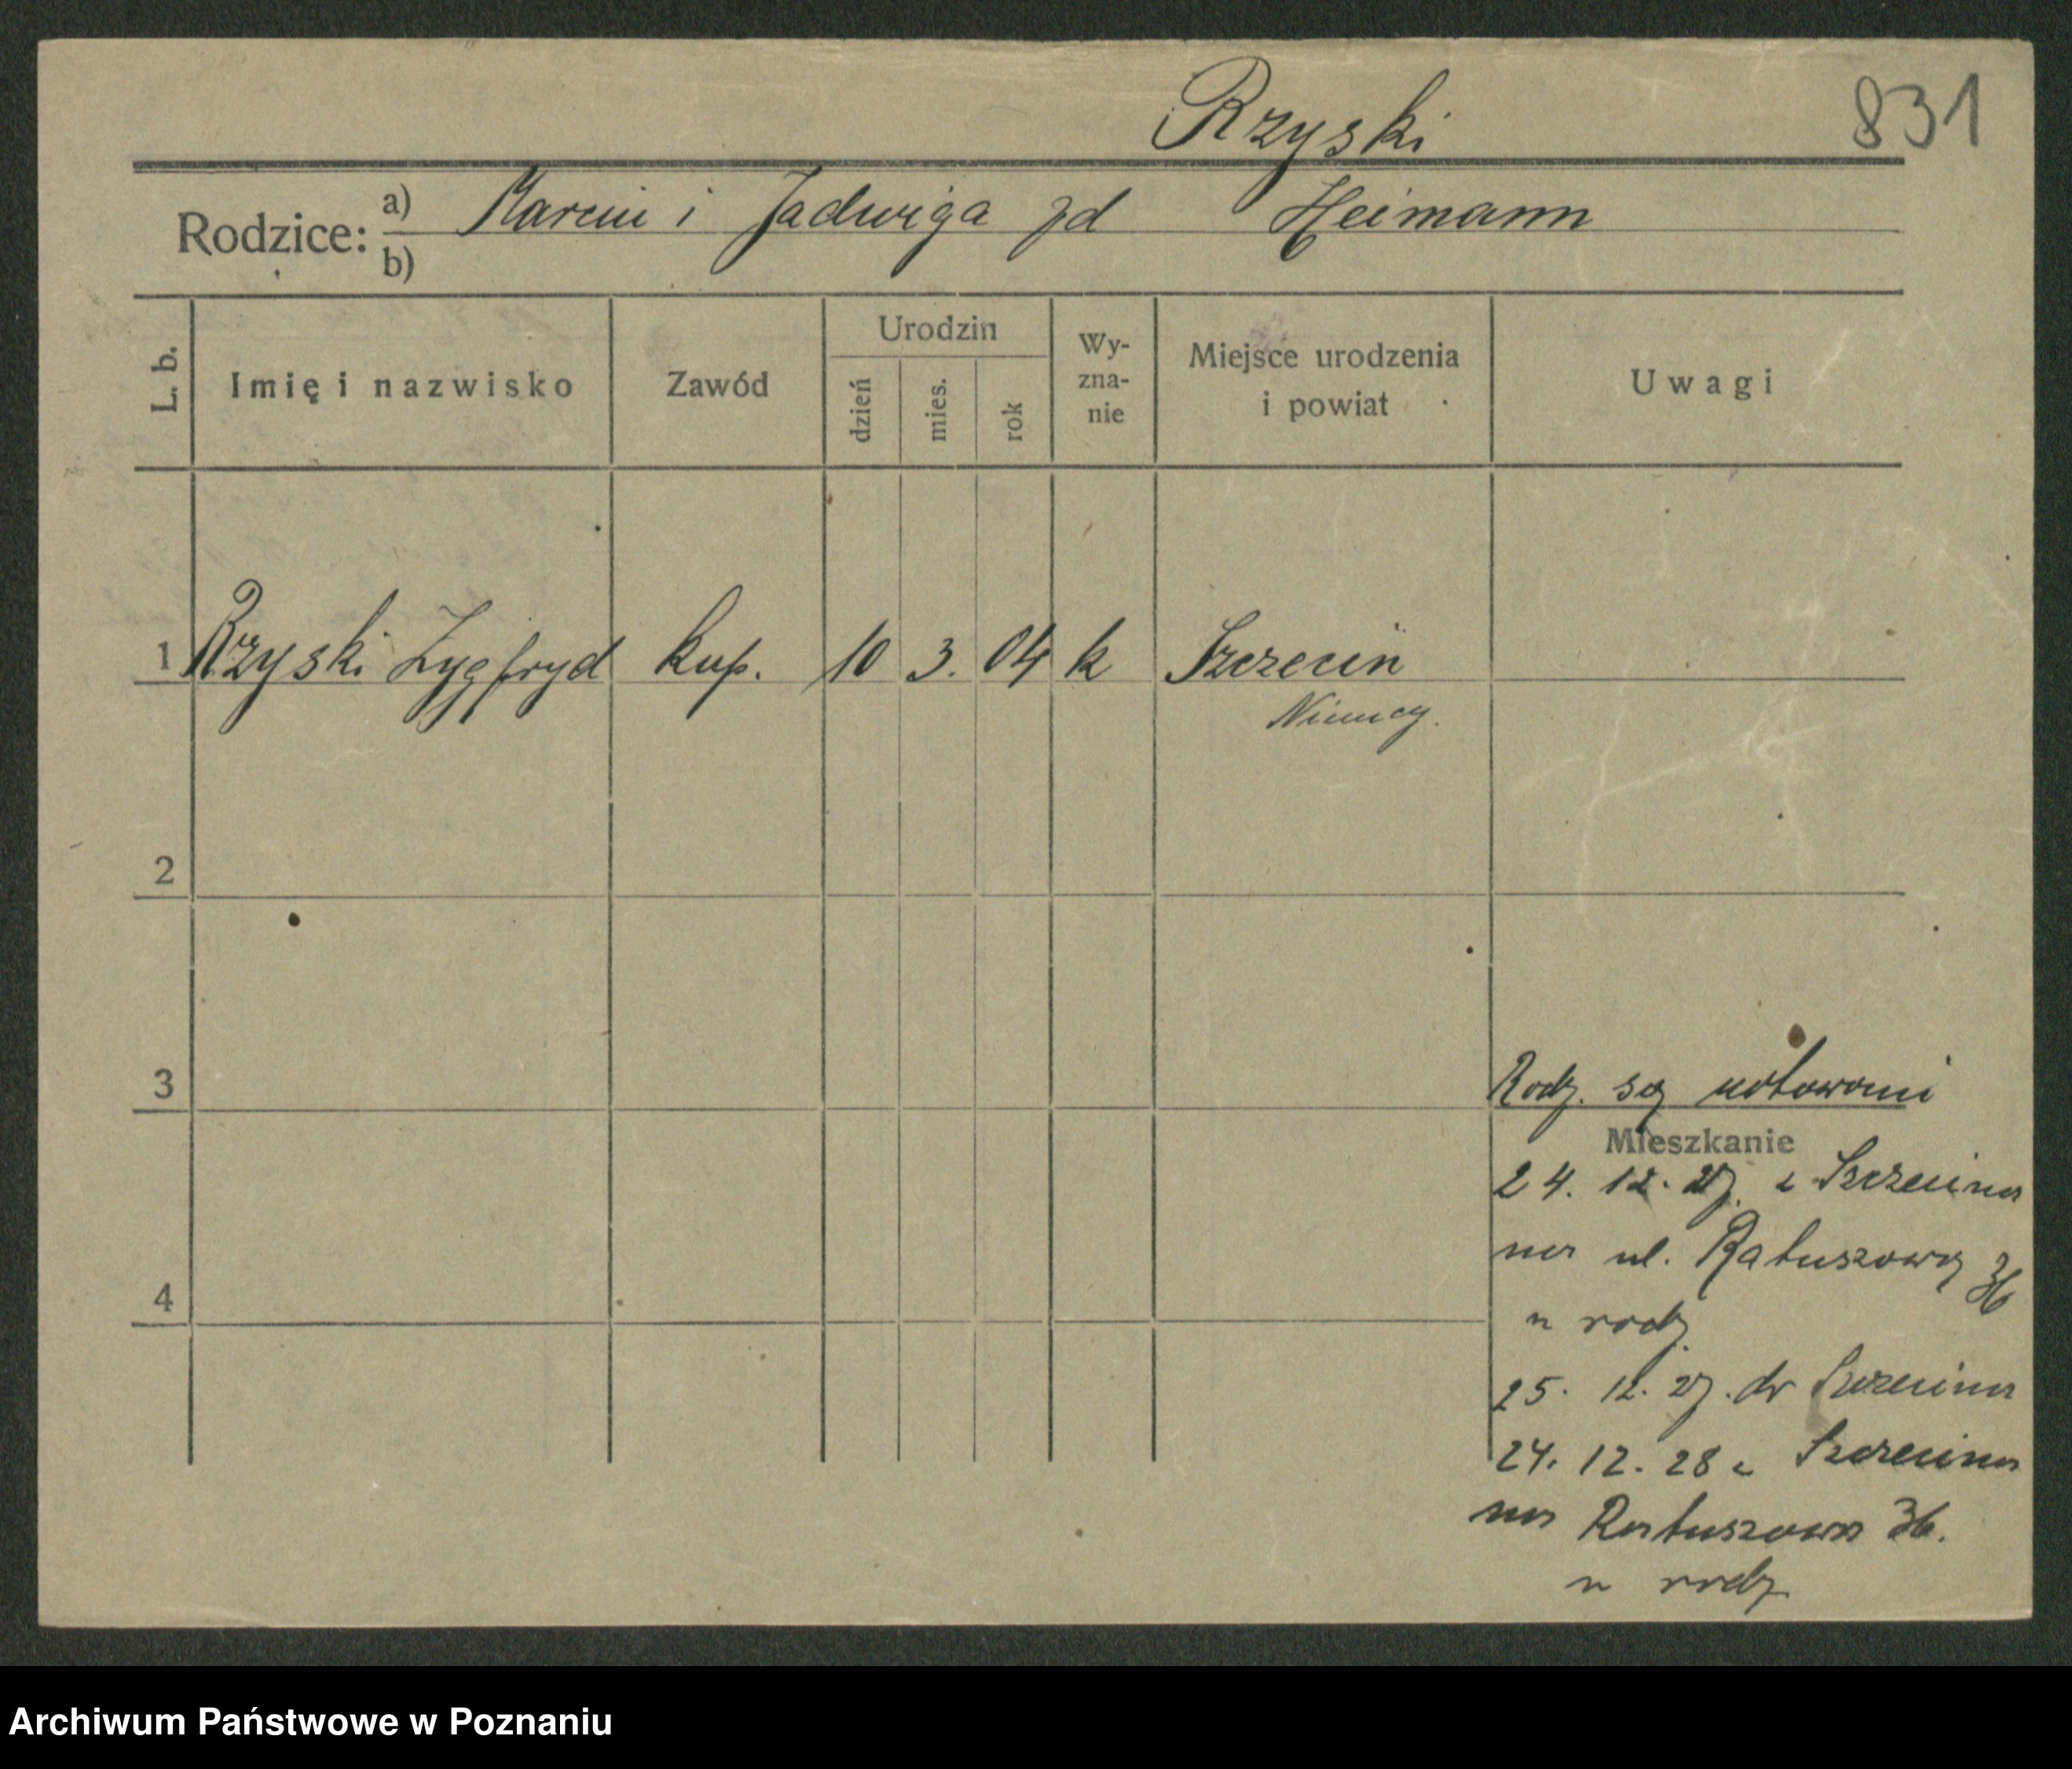 Rzyski 831
Rodzice: a) Marcin i Jadwiga zd Heimann
b)
L. b. Imię i nazwisko Zawód Urodzin dzień mies. rok Wy-zna-nie Miejsce urodzenia i powiat Uwagi
1 Rzyski Zygfryd kup. 10 3. 04 k Szczecin
Niemcy.
2
3 Rodz. są notowani
Mieszkanie
24. 12. 27. z Szczecina
na ul. Ratuszową 36
4
u rodz.
25. 12. 27. do Szczecina
24. 12. 28 z Szczecina
na Ratuszowa 36.
u rodz
Archiwum Państwowe w Poznaniu